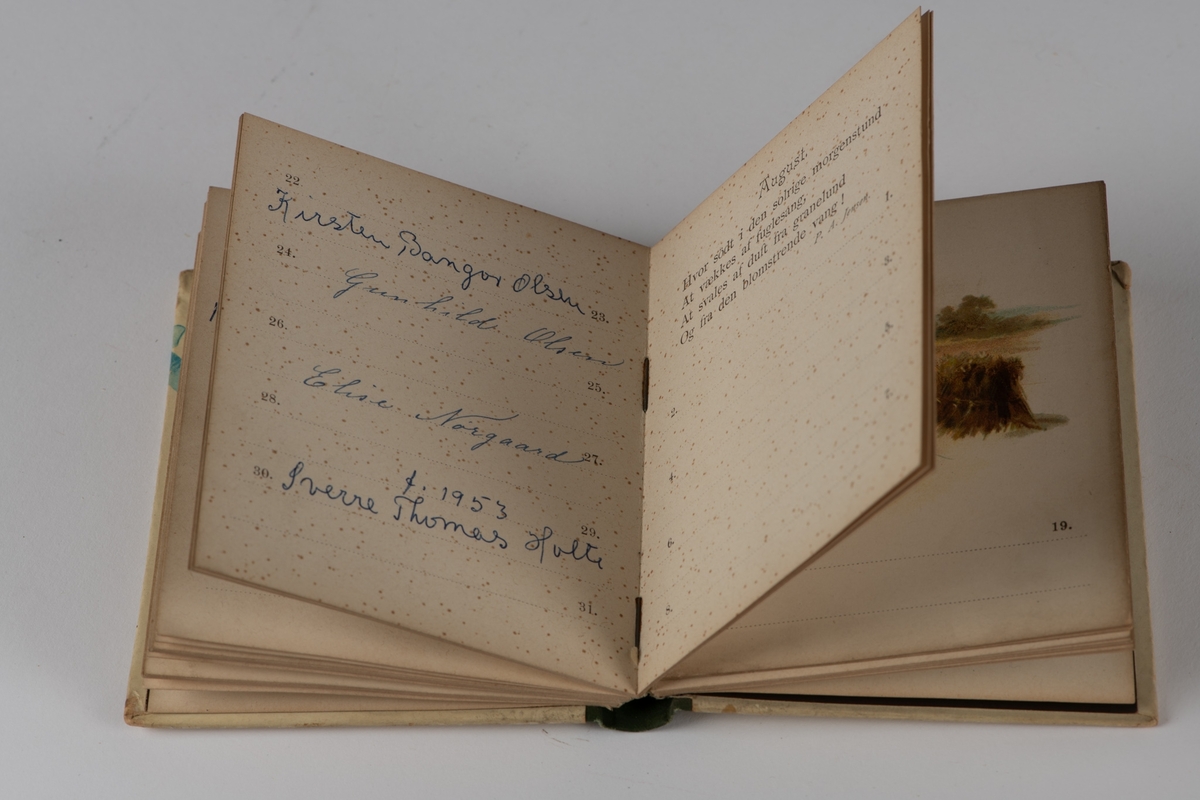 22
Kirsten Bangor Olsen
23.
24.
Gunhild Olsen
25.
26.
Elise Norgaard
27.
28.
f. 1953
29.
30.
Sverre Thomas Holte
31.
August.
Hvor södt i den solrige morgenstund
At vækkes af fuglesang,
At svales af duft fra granelund
Og fra den blomstrende vang!
P. A. Jensen.
1.
2.
3.
4.
6.
8.
19.